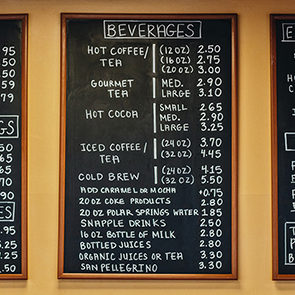 BEVERAGES
HOT COFFEE/ TEA (12 OZ) 2.50
(16 OZ) 2.75
(20 OZ) 3.00
GOURMET TEA MED. 2.90
LARGE 3.10
HOT COCOA SMALL 2.65
MED. 2.90
LARGE 3.25
ICED COFFEE/ TEA (24 OZ) 3.70
(32 OZ) 4.45
COLD BREW (24 OZ) 4.15
(32 OZ) 5.50
ADD CARAMEL OR MOCHA +0.75
20 OZ COKE PRODUCTS 2.80
20 OZ POLAR SPRINGS WATER 1.85
SNAPPLE DRINKS 2.50
16 OZ BOTTLE OF MILK 2.80
BOTTLED JUICES 2.80
ORGANIC JUICES OR TEA 3.30
SAN PELLEGRINO 3.30